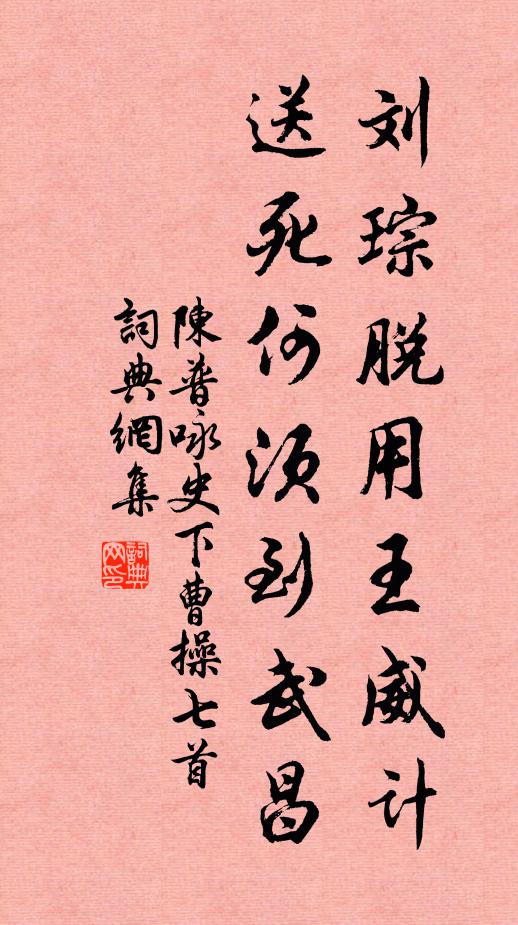 刘琮脱用王威计
送死何须到武昌
陳普咏史下曹操七首
詞典網集
詞典网印